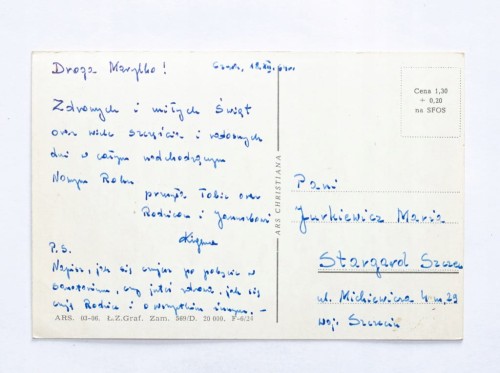 Droga Marylko!
Zdrowych i miłych Świąt
oraz wiele szczęścia i radosnych
dni w całym nadchodzącym
Nowym Roku
przesyła Tobie oraz
Rodzicom i
P.S.
Napisz, jak się czujesz po pobycie w
sanatorium, czy jesteś zdrowa, jak się
czują Rodzice i o wszystkim innym. –
ARS. 03-06. Ł.Z.Graf. Zam. 569/D. 20 000, F-6/24
ARS CHRISTIANA
Cena 1,30
+ 0,20
na SFOS
Pani
Jurkiewicz Maria
Stargard Szcze
ul. Mickiewicza 4 m. 29
woj. Szczecin